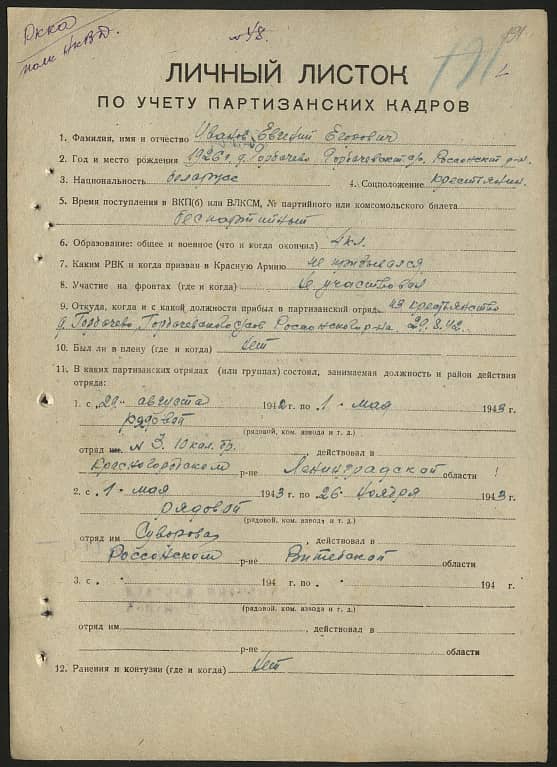 РККА
полк НКВД
№48.
191
ЛИЧНЫЙ ЛИСТОК
ПО УЧЕТУ ПАРТИЗАНСКИХ КАДРОВ
1. Фамилия, имя и отчество Иванов Евгений Егорович
2. Год и место рождения 1926 г. д. Горбачево, Горбачевского с/с, Россонский р-н
3. Национальность беларус 4. Соцположение крестьянин
5. Время поступления в ВКП(б) или ВЛКСМ, № партийного или комсомольского билета
беспартийный
6. Образование: общее и военное (что и когда окончил) 4 кл.
7. Каким РВК и когда призван в Красную Армию не призывался
8. Участие на фронтах (где и когда) не участвовал
9. Откуда, когда и с какой должности прибыл в партизанский отряд из крестьянство
д. Горбачево, Горбачевского с/сов Россонского р-на. 29.8.42.
10. Был ли в плену (где и когда) нет
11. В каких партизанских отрядах (или группах) состоял, занимаемая должность и район действия
отряда:
1. с „29“ августа 1942 г. по 1 - мая 1943 г.
рядовой
(рядовой, ком. взвода и т. д.)
отряд им. № 3. 10 кал. бр. , действовал в
Красногородском р-не Ленинградской области
2. с 1 - мая 1943 г. по 26 - ноября 1943 г.
рядовой
(рядовой, ком. взвода и т. д.)
отряд им Суворова , действовал в
Россонском р-не Витебской области
3. с 194 г. по 194 г.
(рядовой, ком. взвода и т. д.)
отряд им. , действовал в
р-не области
12. Ранения и контузии (где и когда) нет